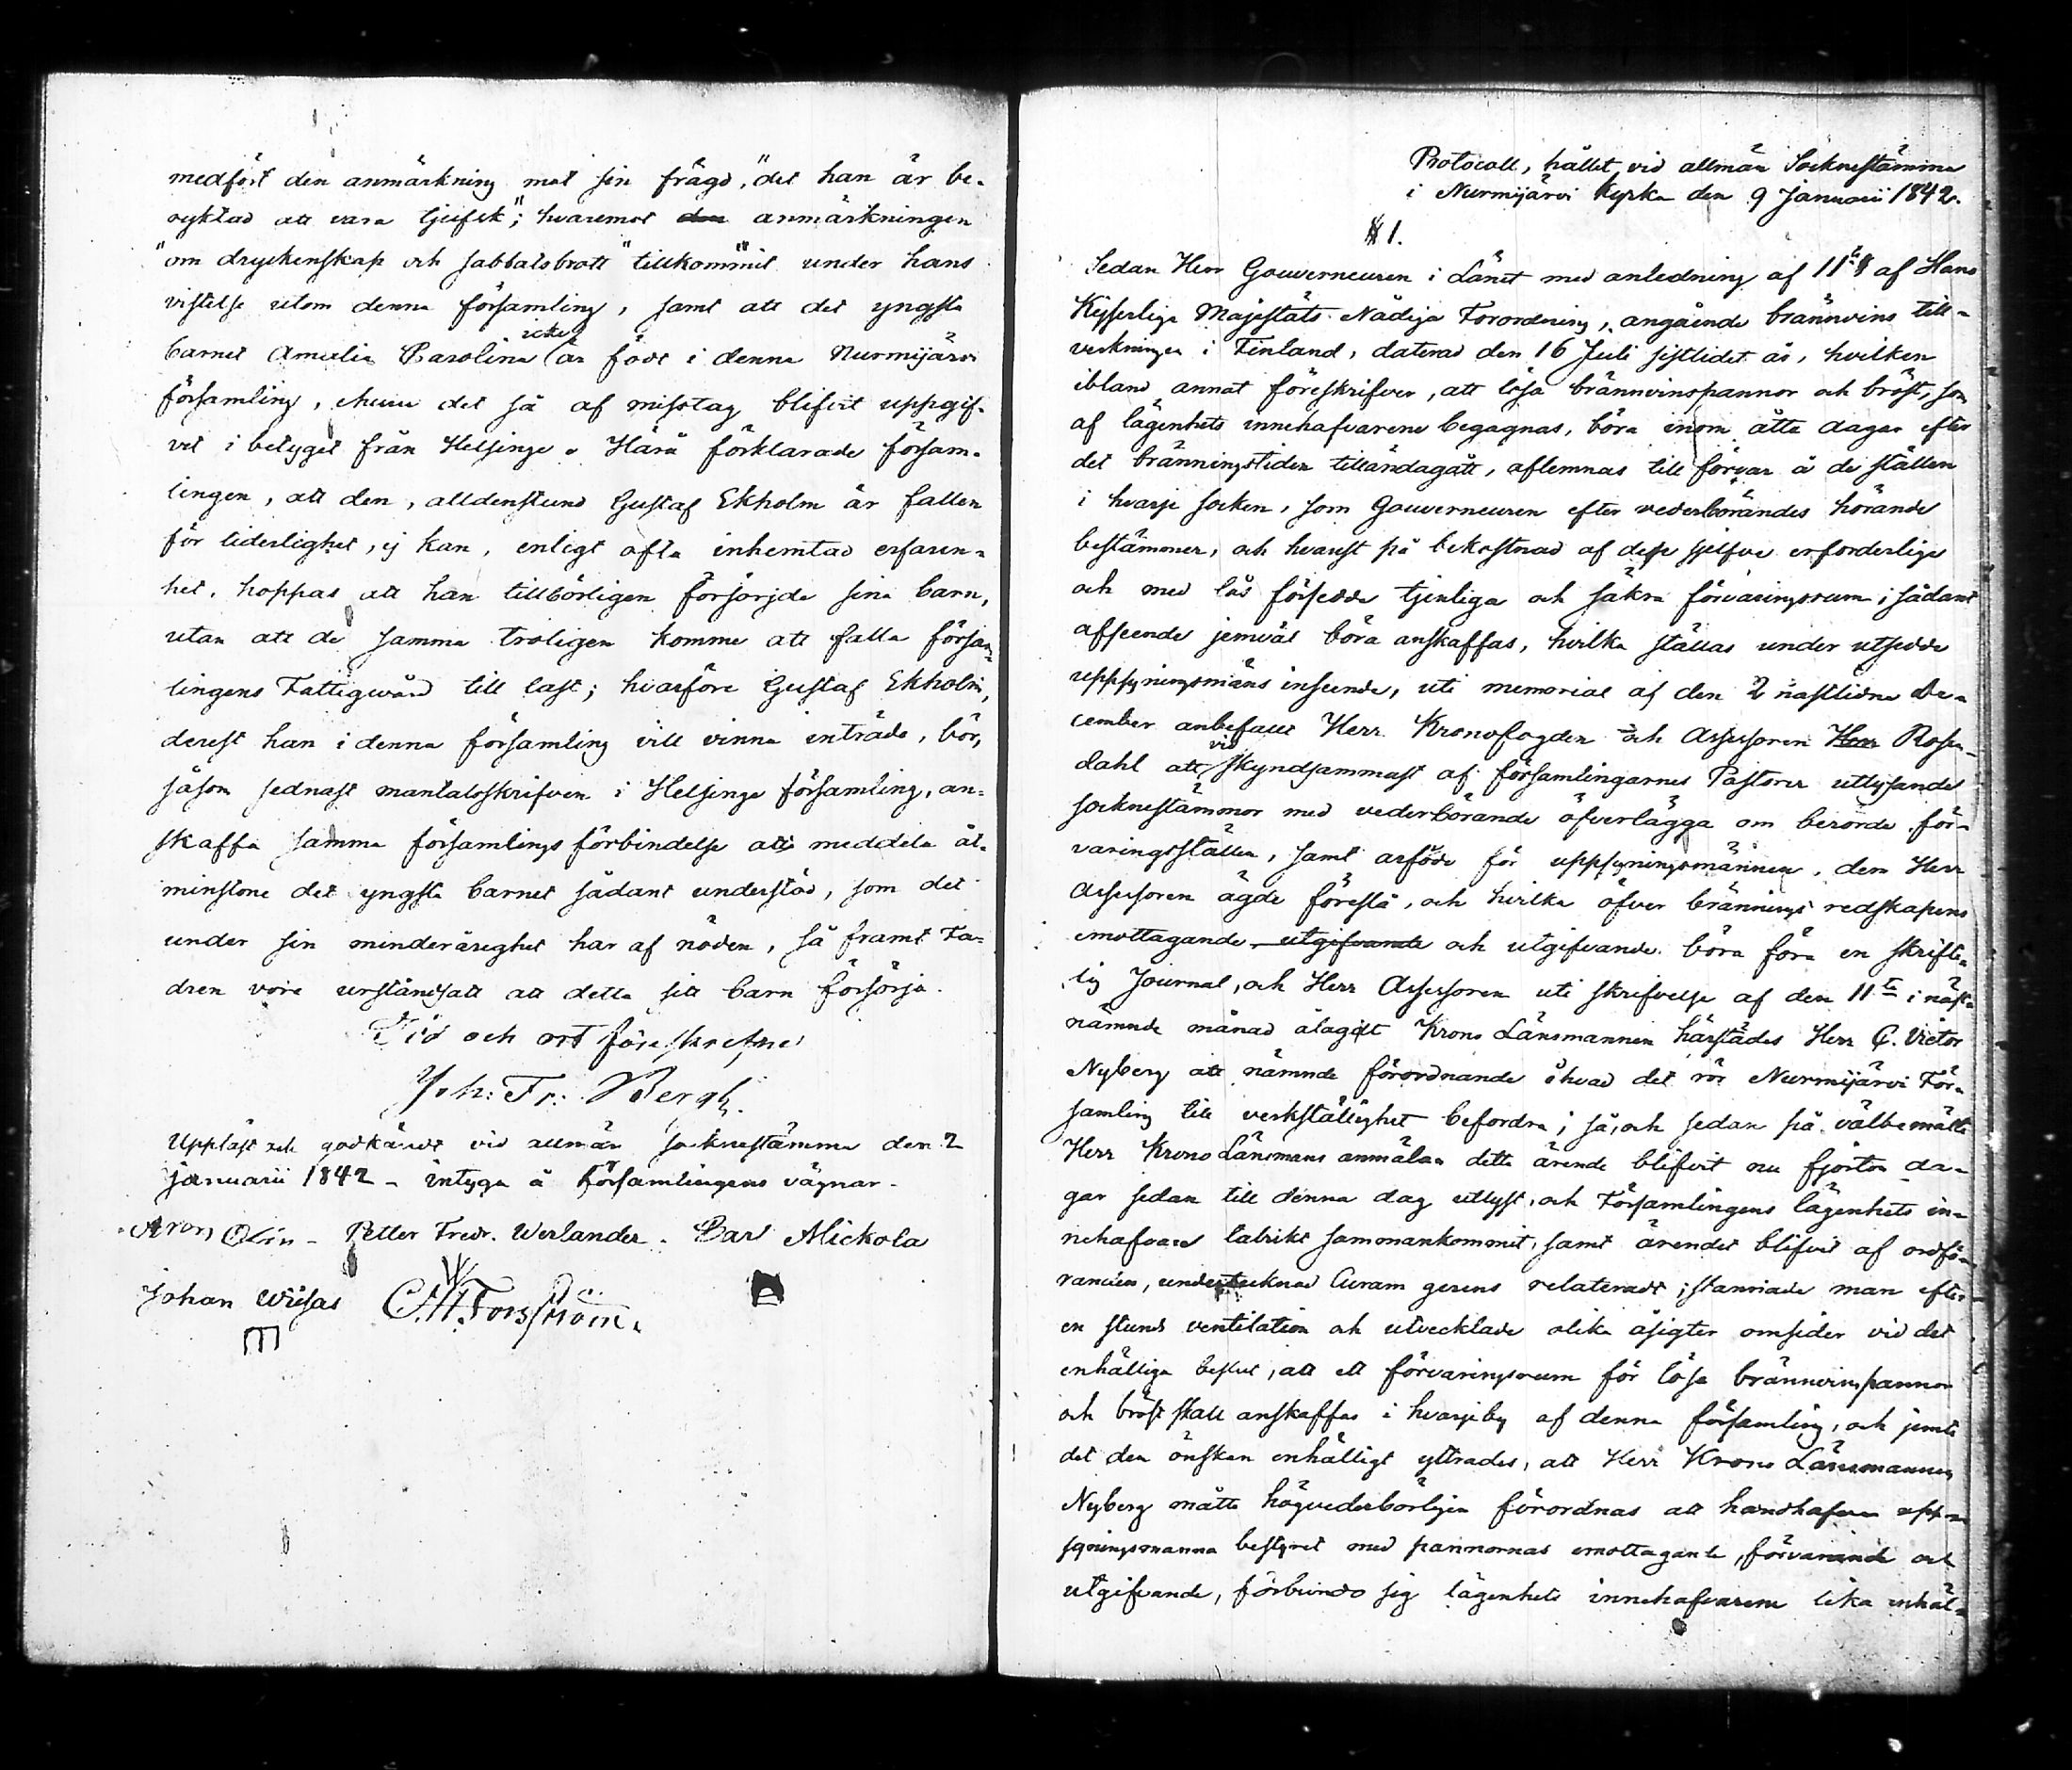 medfört den anmärkning mot sin frägd, "det han är be-
ryktad att vara tjufsk"; hvaremot den anmärkningen
"om dryckenskap och sabbatsbrott" tillkommit under hans
vistelse utom denna församling, samt att det yngsta
icke
barnet Amalia Carolina är födt i denna Nurmijärvi
församling, ehuru det så af misstag blifvit uppgif-
vit i betyget från Helsinge. Härå förklarade försam-
lingen, att den, alldenstund Gustaf Ekholm är fallen
för liderlighet, ej kan, enligt ofta inhemtad erfaren-
het, hoppas att han tillbörligen försörjde sina barn,
utan att de samma troligen komme att falla försam-
lingens Fattigvård till last; hvarföre Gustaf Ekholm,
derest han i denna församling vill vinna inträde, bör,
såsom sednast mantalsskrifven i Helsinge församling, an-
skaffa samma församlings förbindelse att meddela åt-
minstone det yngsta barnet sådant understöd, som det
under sin minderårighet har af nöden, så framt Fa-
dren vore urståndsatt att detta sitt barn försörja.
Tid och ort föreskrefne
Joh: Fr: Bergh.
Uppläst och godkändt vid allmän sockenstämma den 2
januarii 1842 - intyga å Församlingens vägnar.
Aron Olin - Petter Fredr. Werlander. Carl Mickola
Johan Wiisas C.W. Forsström.
Protocoll, hållet vid allmän Socknestämma
i Nurmijärvi Kyrka den 9 Januarii 1842.
§ 1.
Sedan Herr Gouverneuren i Länet med anledning af 11te § af Hans
Kejserliga Majestäts Nådiga Förordning, angående brännvins till-
verkningen i Finland, daterad den 16 Juli sistlidet år, hvilken
ibland annat föreskrifver, att lösa brännvinspannor och bröst, som
af lägenhets innehafvarene begagnas, böra inom åtta dagar efter
det bränningstiden tilländagått, aflemnas till förvar å de ställen
i hvarje socken, som Gouverneuren efter vederbörandes hörande
bestämmer, och hvarest på bekostnad af desse sjelfve erforderlige
och med lås försedde tjenliga och säkra förvaringsrum i sådant
afseende jemväl böra anskaffas, hvilka ställas under utsedde
uppsyningsmäns inseende, uti memorial af den 2 nästlidne De-
cember anbefallt Herr Kronofogden och Assessoren Herr Rosen-
vid
dahl att skyndsammast af församlingarnes Pastorer utlysande
socknestämmor med vederbörande öfverlägga om berörde för-
varingsställen, samt arfvode för uppsyningsmännen, dem Herr
Assessoren ägde föreslå, och hvilka öfver brännings redskapens
emottagande utgifvande och utgifvande böra föra en skrift-
lig Journal, och Herr Assessoren uti skrifvelse af den 11te i näst-
nämnde månad ålagdt Krono Länsmannen härstädes Herr G. Victor
Nyberg att nämnde förordnande i hvad det rör Nurmijärvi För-
samling till verkställighet befordra; så, och sedan på välbemälte
Herr Krono Länsmans anmälan detta ärende blifvit nu fjorton da-
gar sedan till denna dag utlyst, och Församlingens lägenhets in-
nehafvare talrikt sammankommit, samt ärendet blifvit af ordfö-
randen, undertecknad Curam gerens relateradt; stannade man efter
en stunds ventilation och utvecklade olika åsigter omsider vid det
enhälliga beslut, att ett förvaringsrum för lösa brännvinspannor
och bröst skall anskaffas i hvarje by af denna församling, och jemte
det den önskan enhälligt yttrades, att Herr Krono Länsmannen
Nyberg måtte högvederbörligen förordnas att handhafva upp-
syningsmanna bestyret med pannornas emottagande, förvarande och
utgifvande, förbundo sig lägenhets innehafvarene lika enhäl-